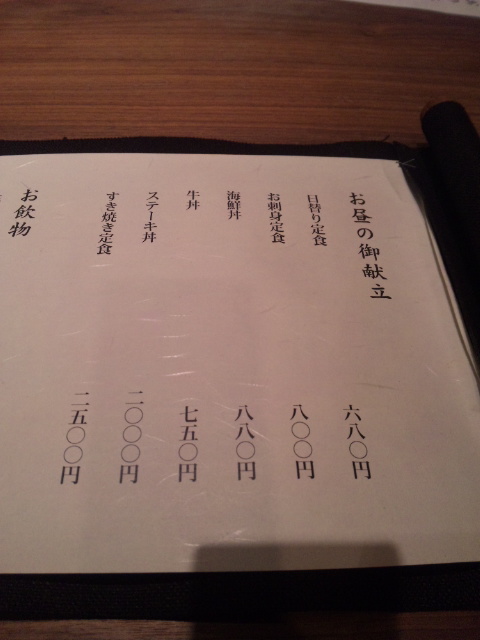 お昼の御献立
日替り定食
六八〇円
お刺身定食
八〇〇円
海鮮丼
八八〇円
牛丼
七五〇円
ステーキ丼
二〇〇〇円
すき焼き定食
二五〇〇円
お飲物